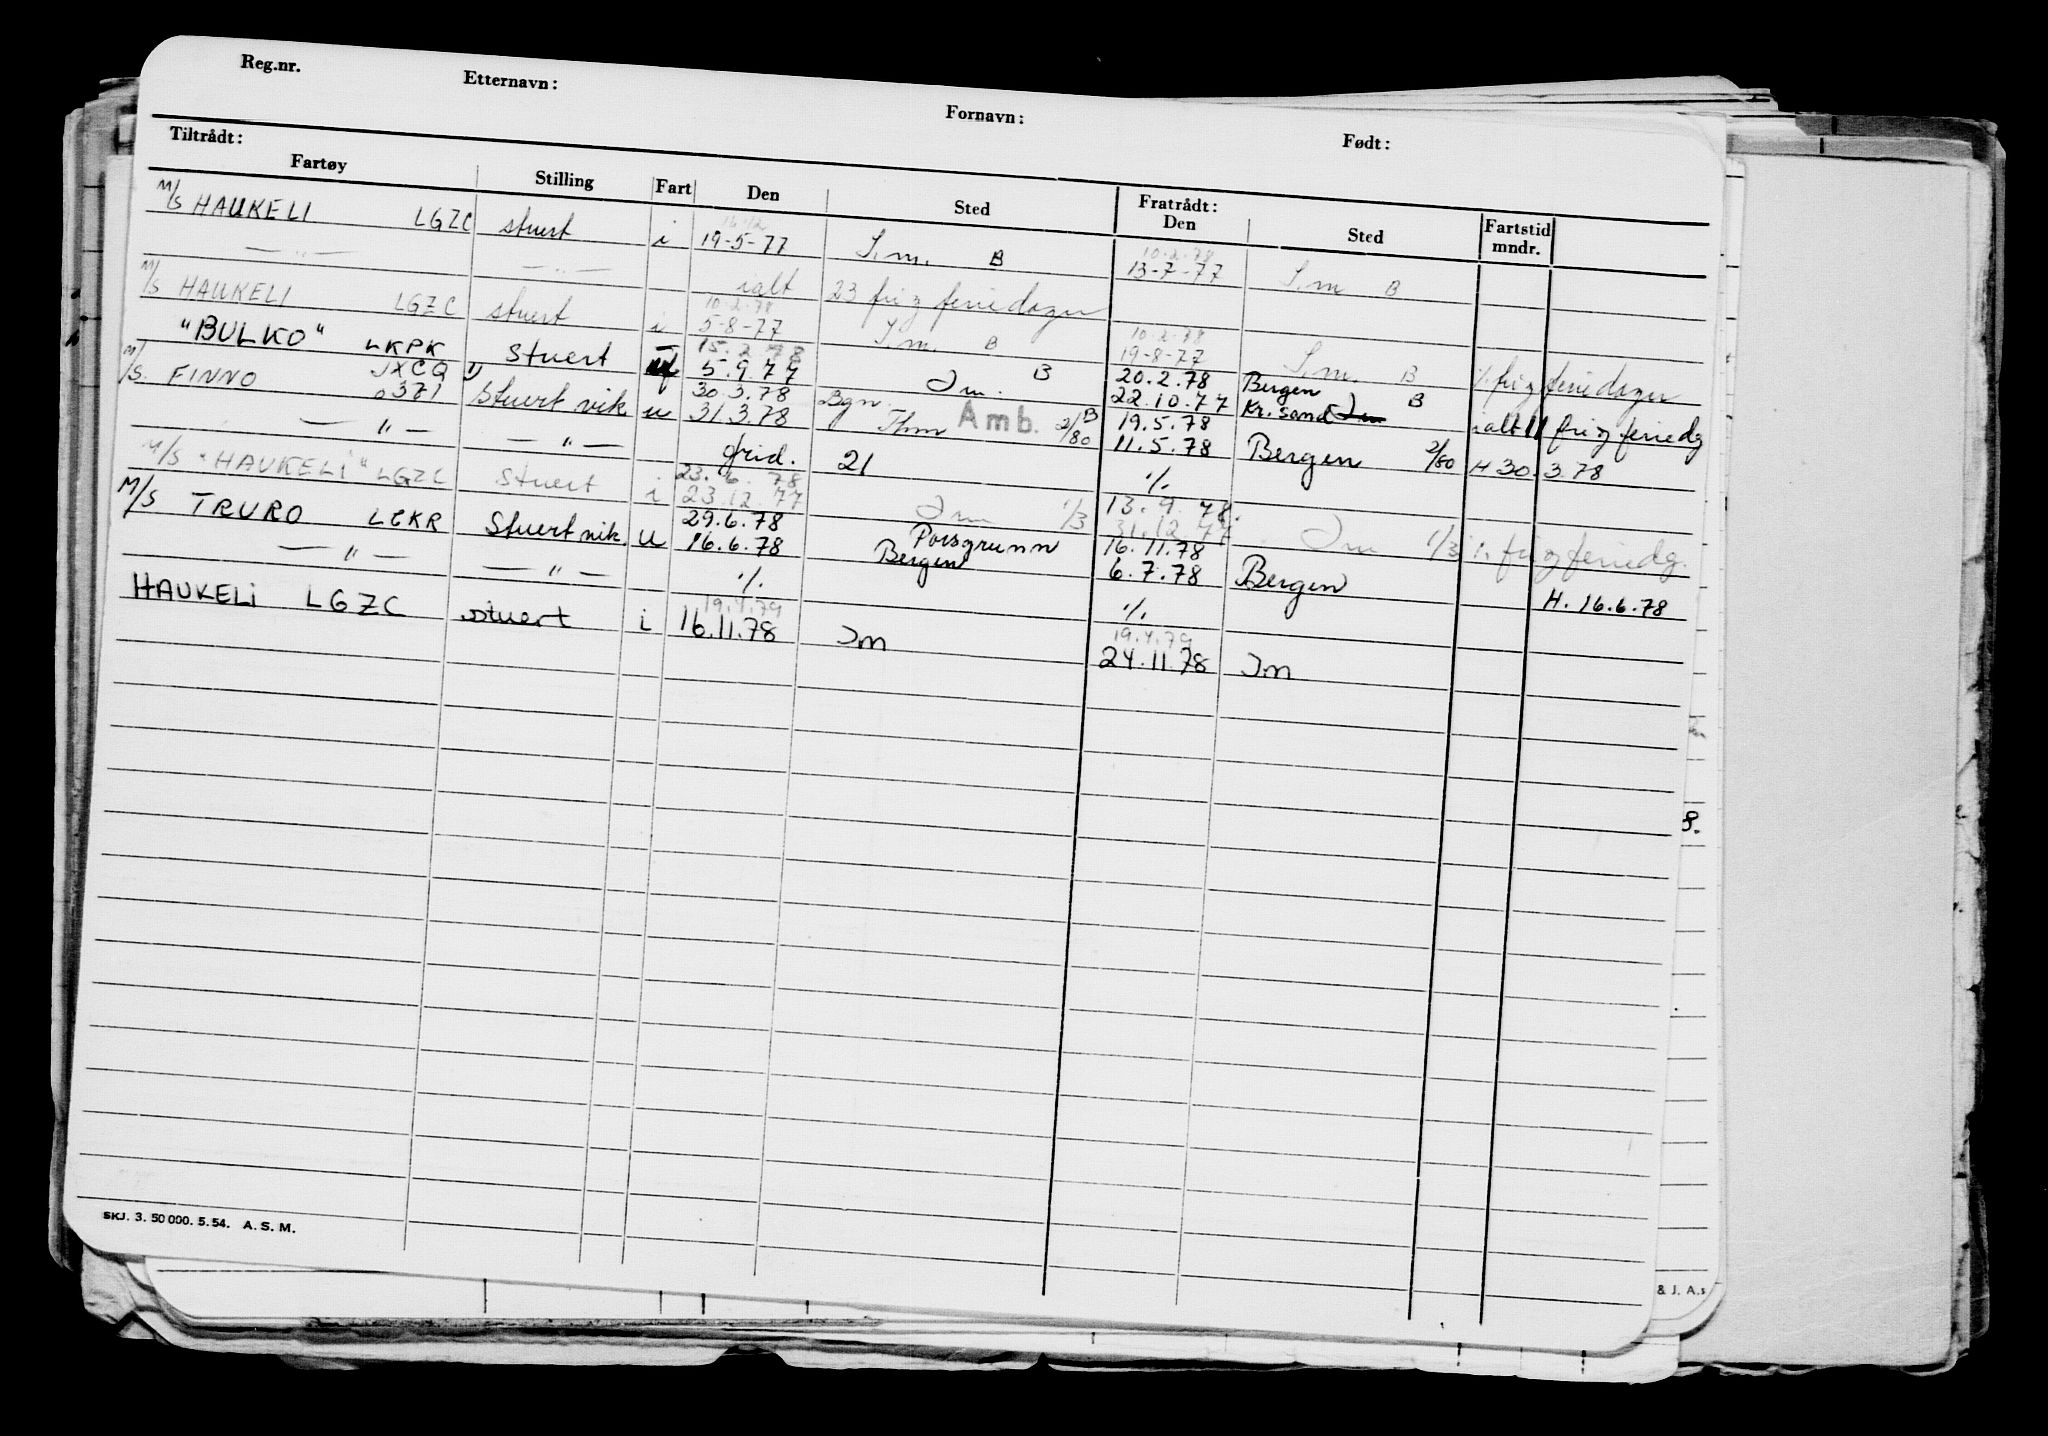 Reg.nr. Etternavn: Fornavn: Født:
Tiltrådt: Fratrådt:
Fartøy Stilling Fart Den Sted Den Sted Fartstid mndr.
16.12 10.2.78
M/S HAUKELI LGZC stuert i 19-5-77 S.m. B 13-7-77 S.m B
— " — — " — ialt 23 fri og feriedager
10-2-78 10-2-78
M/S HAUKELI LGZC stuert i 5-8-77 S.m. B 19-8-77 S.m. B ·/. fri og feriedager
15.2.78 20.2.78 Bergen
"BULKO" LKPK Stuert 5.9.77 Im. B 22.10.77 Kr.sand B ialt 11 fri og feriedg
JXCQ 30.3.78 Bgn. 19.5.78
M/S. FINNO 0371 Stuert vik. u 31.3.78 Amb. B 2/80 11.5.78 Bergen 2/80 H 30.3.78
— " — — " — grid. 21 ·/.
23.6.78 13.9.78.
M/S "HAUKELI" LGZC Stuert i 23.12.77 Im 1/3 31.12.77 Im 1/3 ·/. fri og feriedg.
29.6.78 Porsgrunn 16.11.78
M/S TRURO LEKR Stuert vik. u 16.6.78 Bergen 6.7.78 Bergen H. 16.6.78
— " — — " — ·/. ·/.
19.4.79 19.4.79
HAUKELI LGZC stuert i 16.11.78 Im 24.11.78 Im
8.
SKJ. 3. 50 000. 5. 54. A. S. M.
& J. A.s